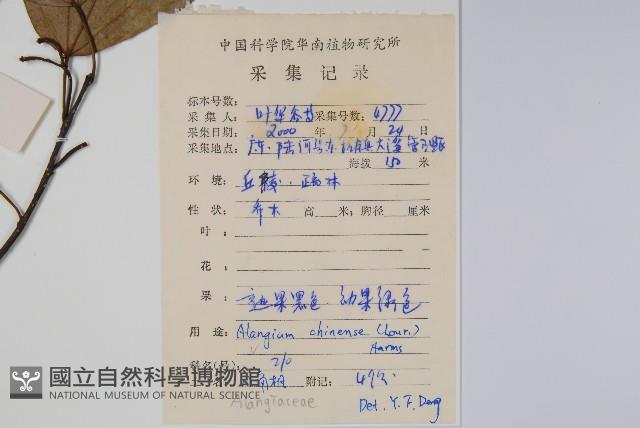 中国科学院华南植物研究所
采集记录
标本号数:
采集人: 叶华谷 采集号数: 4777
采集日期: 2000 年 月 24 日
采集地点: 广东·陆河县
海拨 150 米
环境: 丘陵·疏林
性状: 乔木 高 米; 胸径 厘米
叶:
花:
果: 熟果黑色 幼果绿色
用途: Alangium chinense (Lour.)
Harms
科名(号): 210
八角枫 附记: 4份
Alangiaceae Det. Y. F. Deng
國立自然科學博物館
NATIONAL MUSEUM OF NATURAL SCIENCE